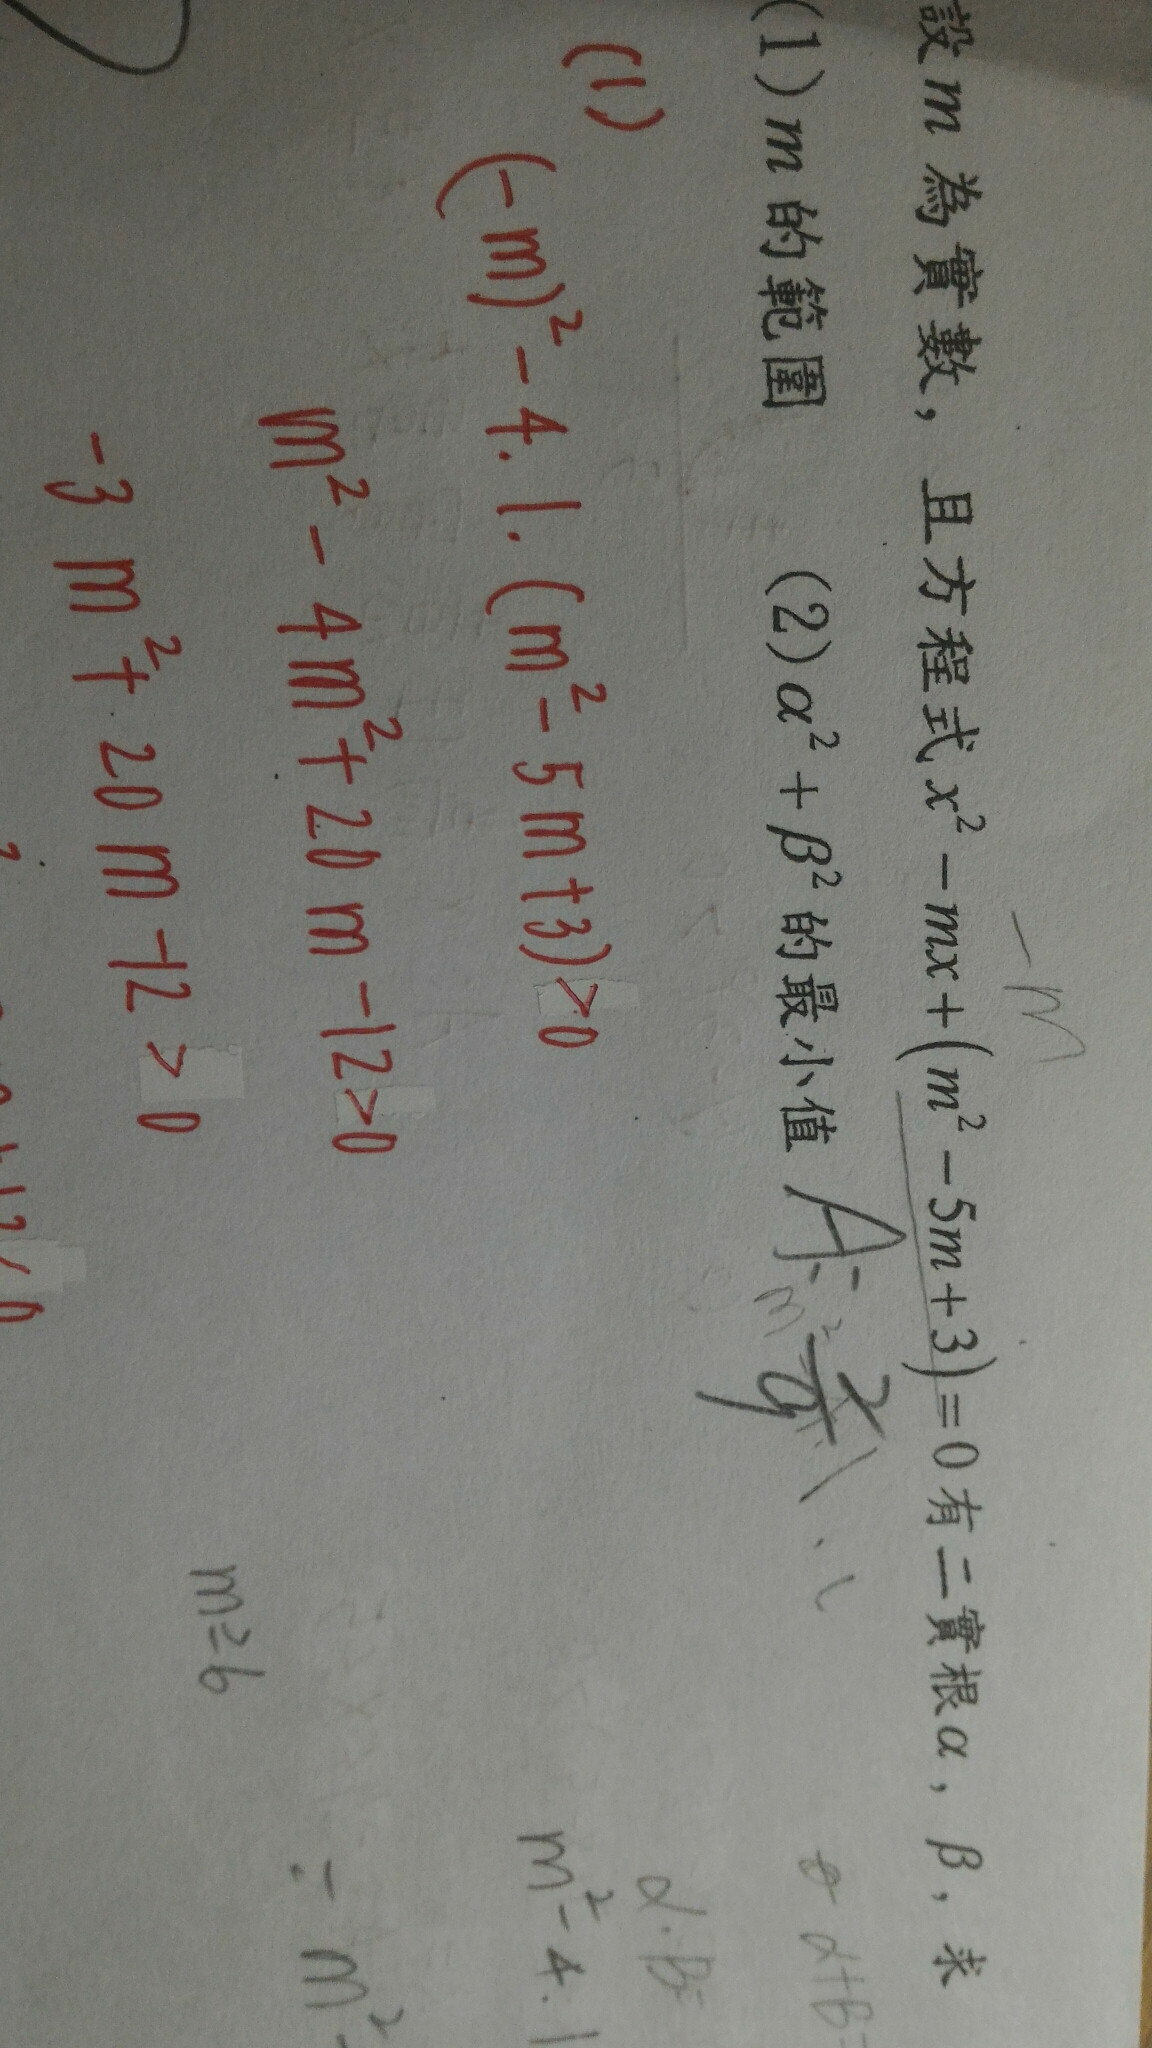 設m為實數，且方程式x²-mx+(m²-5m+3)=0有二實根α，β，求
-m
(1)m的範圍 (2)α²+β²的最小值
(1)
(-m)²-4.1.(m²-5m+3)>0
m²-4m²+20m-12>0
-3m²+20m-12>0
α+β=
α.β=
m²-4.1
= m²-